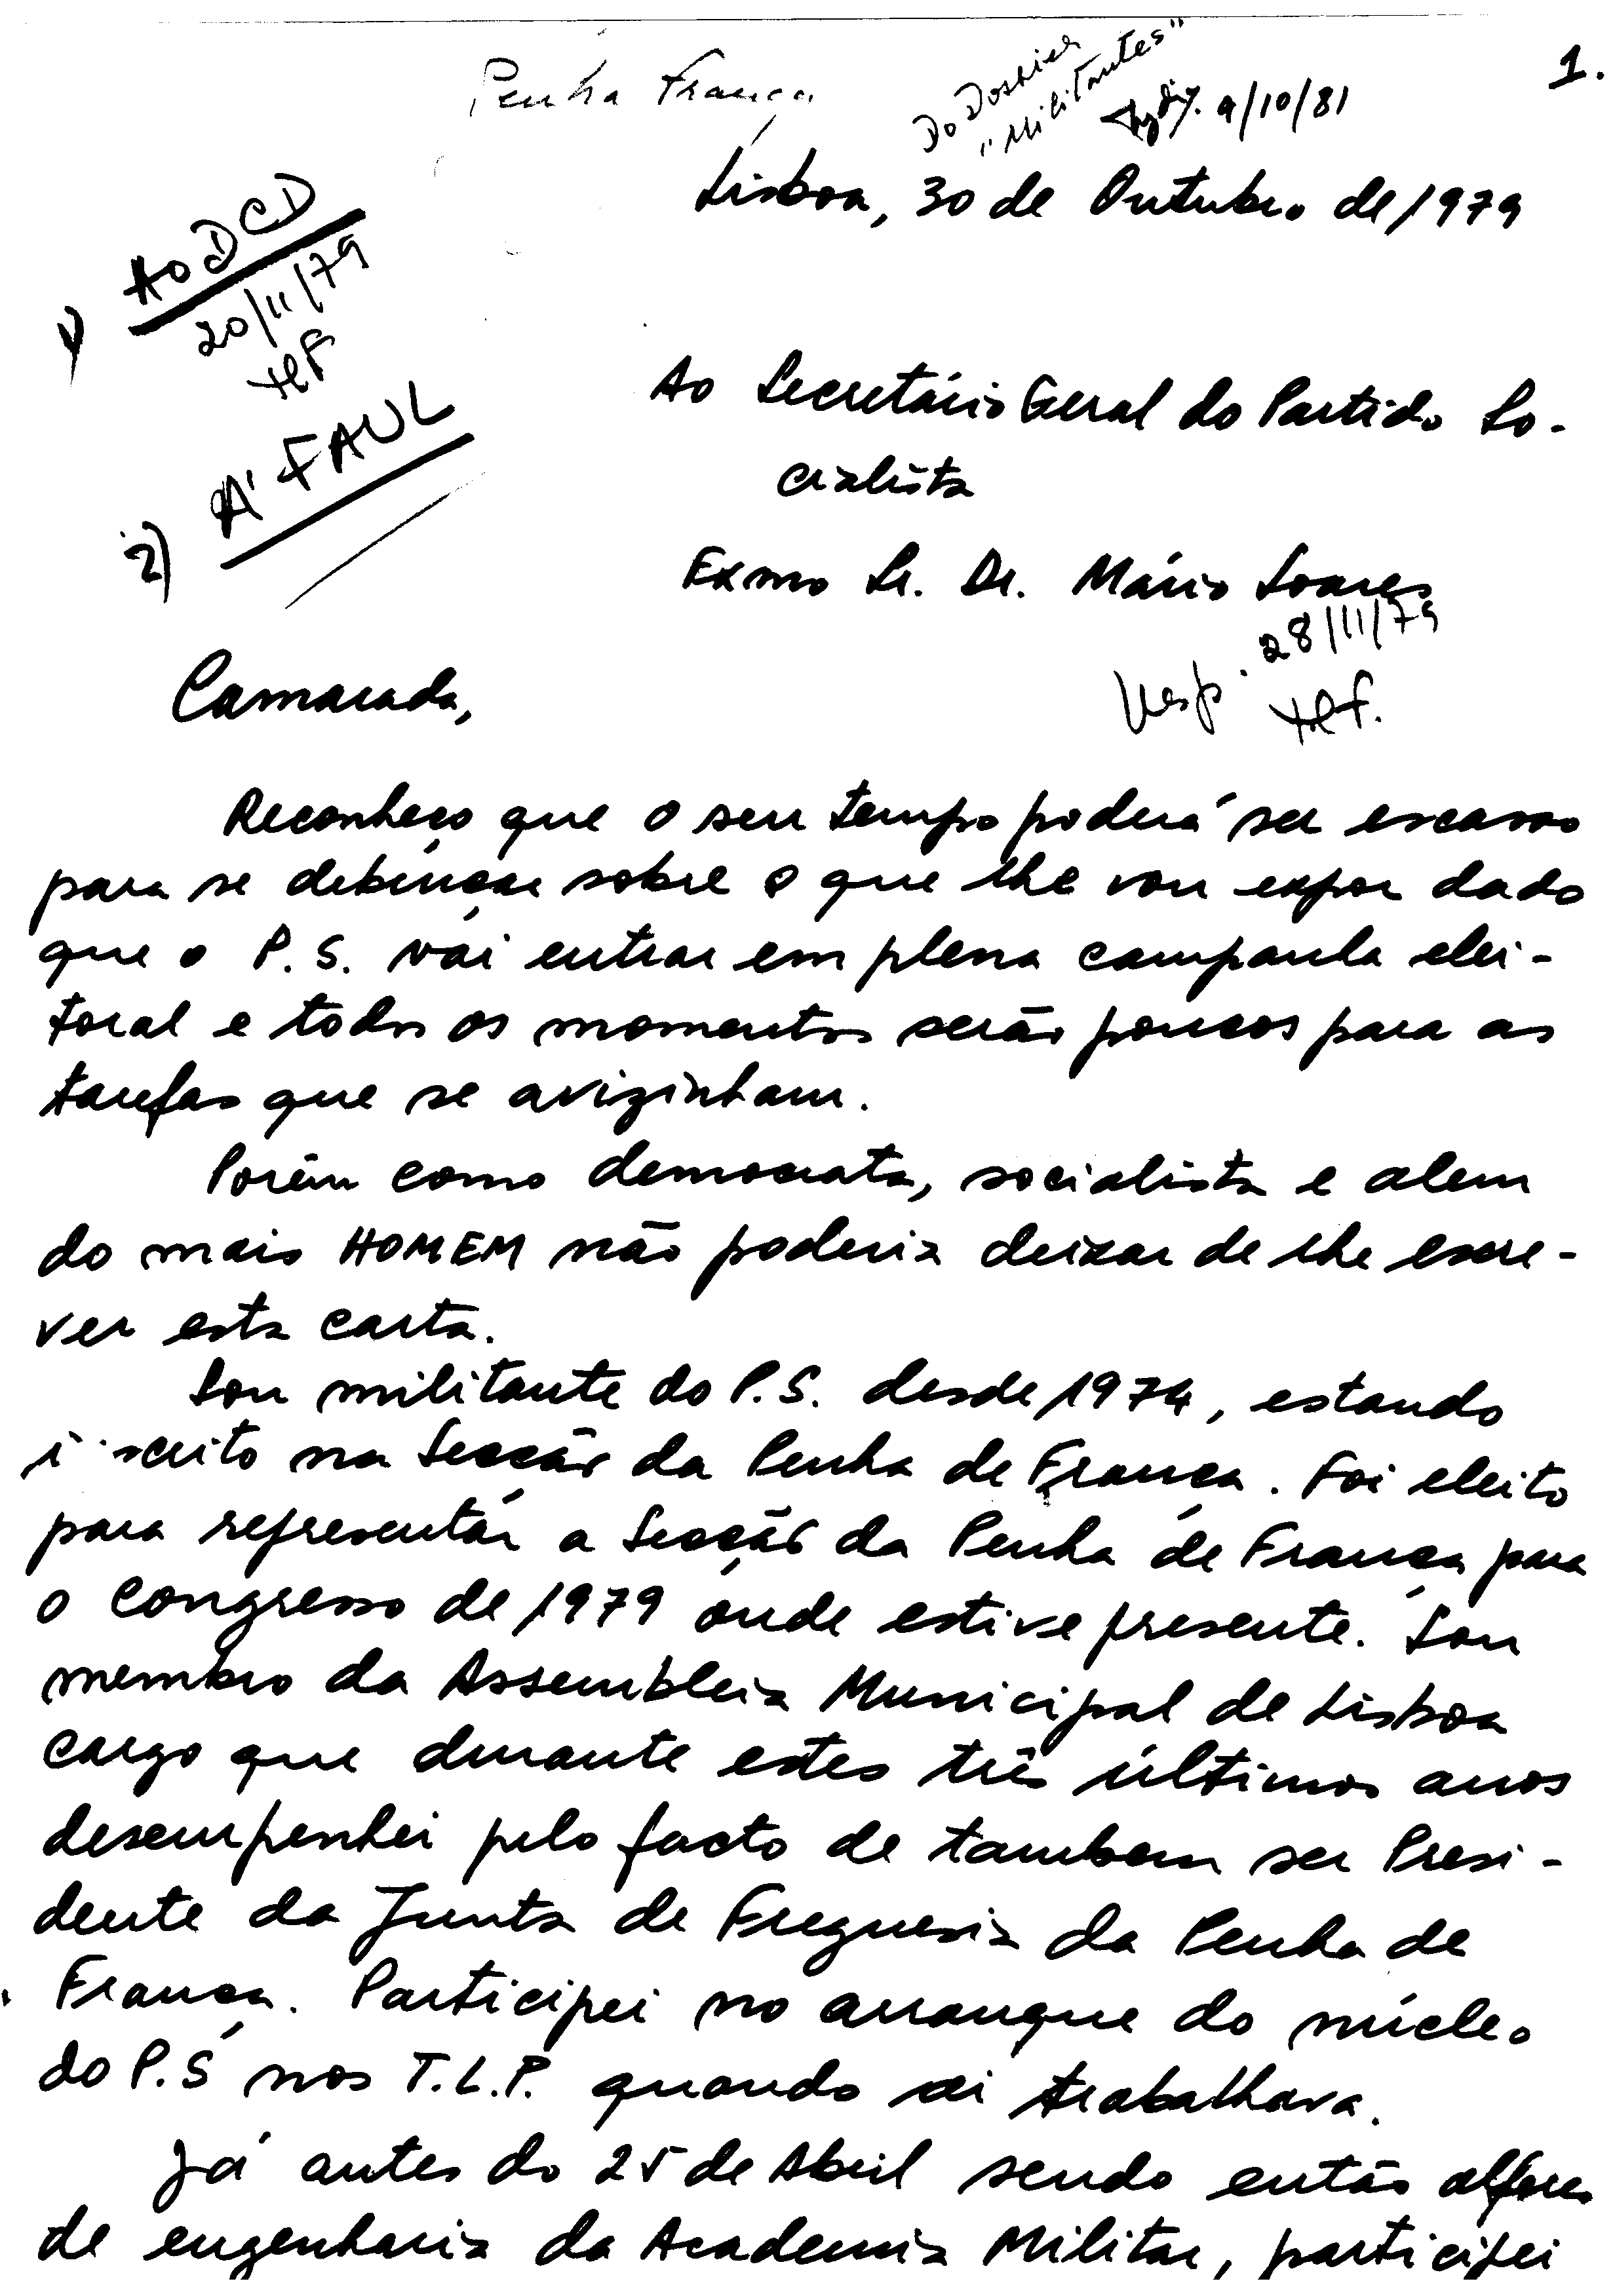 1.
Penha França
Do Dossier
"Militantes"
9/10/81
Lisboa, 30 de Outubro de 1979
1) Ao DCD
20/11/79
2) A' FAUL
Ao Secretário Geral do Partido So-
cialista
Exmo Sr. Dr. Mário Soares
Resp. 28/11/79
Camarada,
Reconheço que o seu tempo poderá ser escasso
para se debruçar sobre o que lhe vou expor dado
que o P.S. vai entrar em plena campanha elei-
toral e todos os momentos serão poucos para as
tarefas que se avizinham.
Porém como democrata, socialista e alem
do mais HOMEM não poderia deixar de lhe escre-
ver esta carta.
Sou militante do P.S. desde 1974, estando
iscrito na Secção da Penha de França. Foi eleito
para representar a Secção da Penha de França para
o Congresso de 1979 onde estive presente. Sou
membro da Assembleia Municipal de Lisboa
cargo que durante estes três últimos anos
desempenhei pelo facto de tambem ser Presi-
dente da Junta de Freguesia da Penha de
França. Participei no arranque do núcleo
do P.S nos T.L.P. quando ai trabalhava.
Já antes do 25 de Abril sendo então alferes
de engenharia da Academia Militar, participei